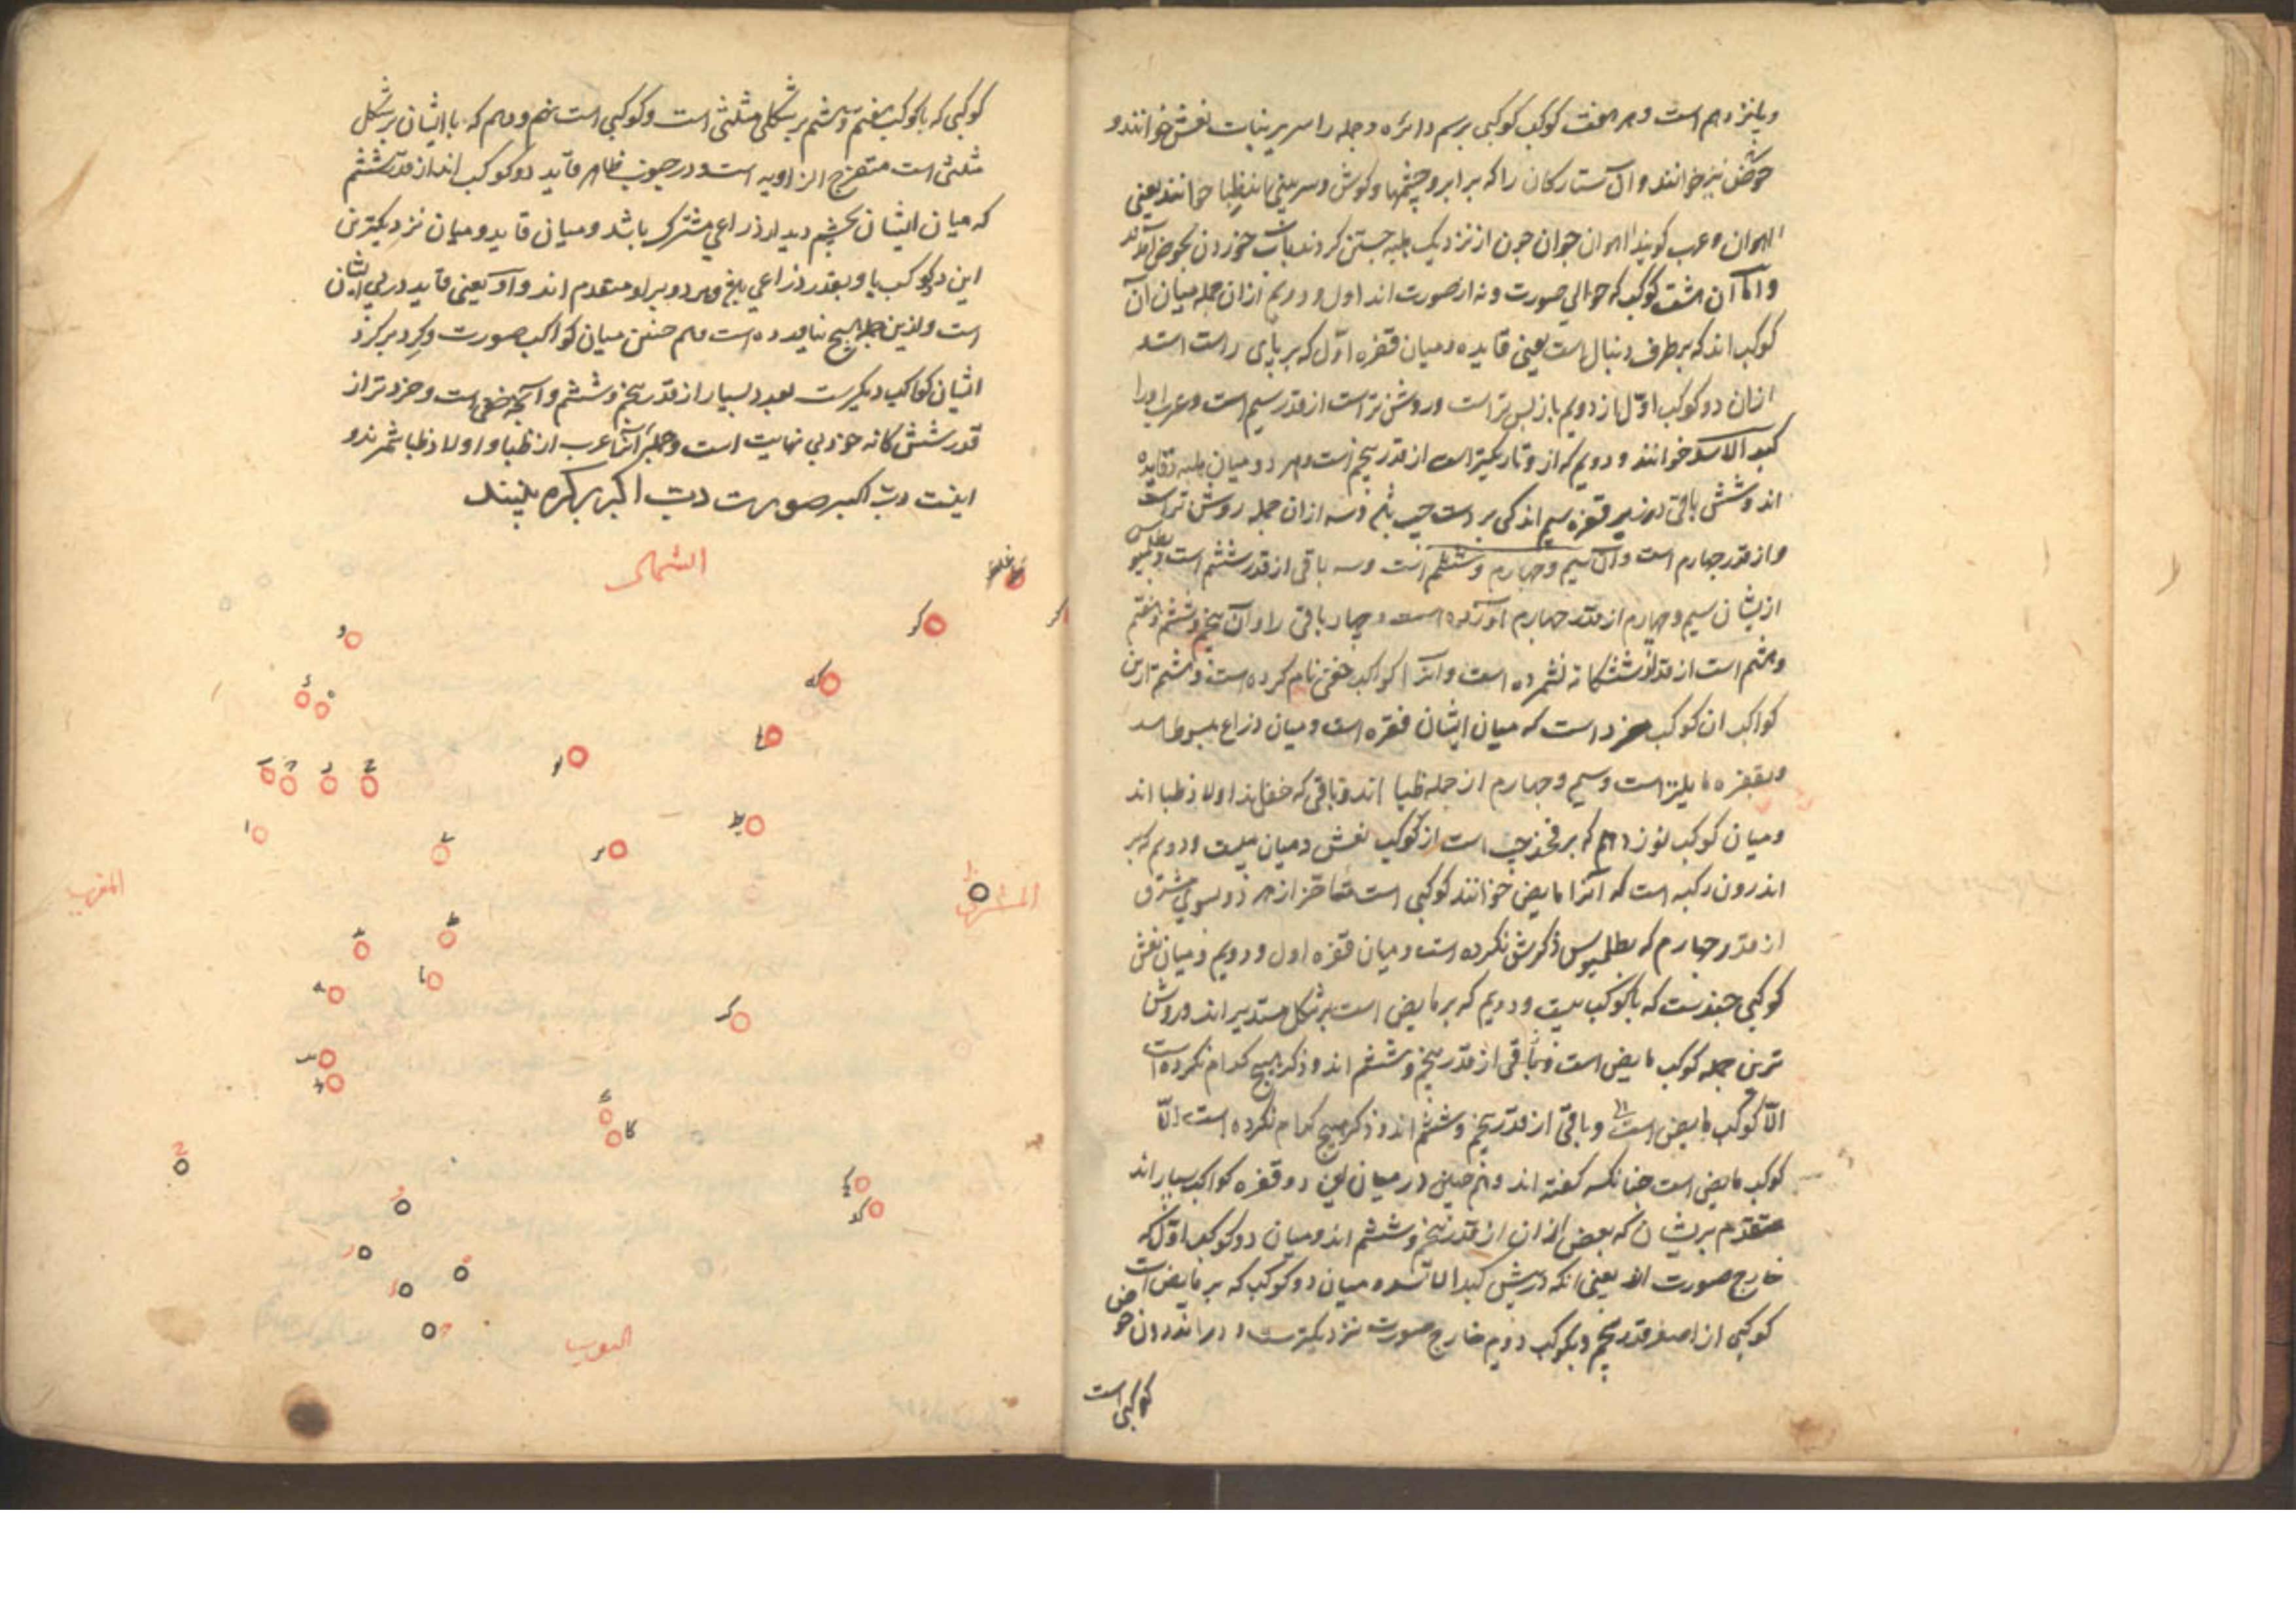 و پانزدهم است و هر هفت کوکب کوکبی برسم دائره و جمله را سریر بنات نعش خوانند و
حوض نیز خوانند و آن ستارکان را که بر ابرو و چشمها و کوش و سر بینی‌اند ظبا خوانند یعنی
اهوان و عرب کویند اهوان جوان جون از نزدیک هلبه جستن کردند بآب خوردن بحوض آمدند
و اما آن هشت کوکب که حوالی صورت و نه از صورت اند اول و دویم ازان جمله میان آن
کوکب اند که بر طرف دنبال است یعنی قایده و میان قفزه اول که بر پای راست است
ازان دو کوکب اول از دویم باز پس تر است و روشن تر است از قدر سیم است و عرب او را
کبد الاسد خوانند و دویم که از و تاریکتر است از قدر پنجم است و هر دو میان هلبه و قایده
اند و شش باقی در زیر قفزه سیم اند کی بر دست جپ و سه ازان جمله روشن تر است
و از قدر جهارم است و آن سیم و جهارم و ششم است و سه باقی از قدر ششم است و بطلمیوس
ازیشان سیم و جهارم از قدر جهارم آورده است و چهار باقی را و آن پنجم و ششم و هفتم
و هشتم است از قدر ششکانه نشمرده است و آنرا کواکب خفی نام کرده است و هشتم ازین
کواکب ان کوکب خرد است که میان ایشان قفزه است و میان ذراع مبسوطه اسد
و بقفزه مایلتر است و سیم و جهارم از جمله ظبا اند و باقی که خفی‌اند اولاد ظبا اند
و میان کوکب نوزدهم که بر فخذ چپ است از کوکب نعش و میان بیست و دویم که بر
اندرون رکبه است که آنرا مابض خوانند کوکبی است متاخر از هر دو بسوی مشرق
از قدر جهارم که بطلمیوس ذکرش نکرده است و میان قفزه اول و دویم و میان نعش
کوکبی جندست که با کوکب بیست و دویم که بر مابض است بر شکل مستدیر اند و روشن
ترین جمله کوکب مابض است و باقی از قدر پنجم و ششم اند و ذکر هیچ کدام نکرده است
الا کوکب مابض است و باقی از قدر پنجم و ششم اند و ذکر هیچ کدام نکرده است الا
کوکب مابض است جنانکه کفته اند و هم جنین در میان این دو قفزه کواکب بسیار اند
متقدم بریشان که بعض ازان از قدر پنجم و ششم اند و میان دو کوکب اول که
خارج صورت اند یعنی انکه در پیش کبد الاسد و میان دو کوکب که بر مابض است
کوکبی از اصغر قدر پنجم و بکوکب دویم خارج صورت نزدیکترست و در اندرون حوض
کوکبی است
کوکبی که با کوکب هفتم و هشتم بر شکلی مثلثی است و کوکبی است پنجم و دهم که با ایشان بر شکل
مثلثی است منفرج الزاویه است و در جنوب ظاهر قاید دو کوکب اند از قدر ششم
که میان ایشان بچشم دیدار ذراعی مشترک باشد و میان قاید و میان نزدیکترین
این دو کوکب باو بقدر ذراعی بلغ و هر دو برو متقدم اند و او یعنی قاید در پی ایشان
است و ازین جمله هیچ نیاورده است و هم جنین میان کواکب صورت و کرد بر کرد
ایشان کواکب دیکرست بعدد بسیار از قدر پنجم و ششم و آنچه خفی است و خردتر از
قدر ششکانه خود بی نهایت است و جمله را آنرا عرب از ظبا و اولاد ظبا شمرند و
اینست دب اکبر صورت دب اکبر بر کره بینند
الشمال
المغرب
المشرق
الجنوب